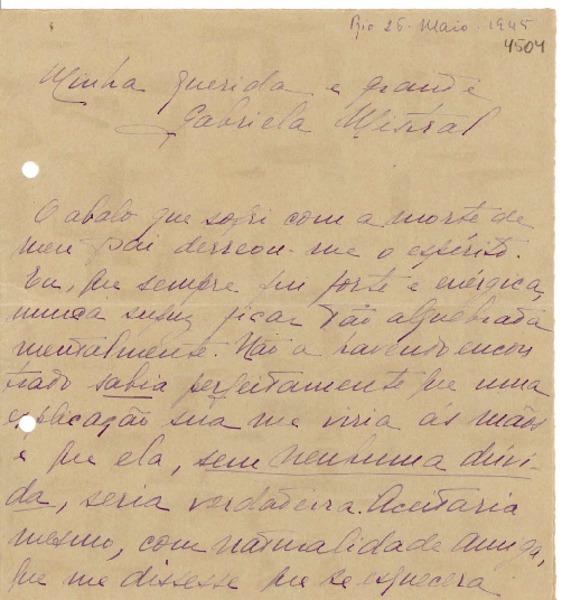 Rio 25 - Maio - 1945
4504
Minha querida e grande
Gabriela Mistral
O abalo que sofri com a morte de
meu pai derreou-me o espírito.
Eu, que sempre fui forte e enérgica,
nunca supuz ficar tão alquebrada
mentalmente. Não a havendo encon
trado sabia perfeitamente que uma
explicação sua me viria ás mãos
e que ela, sem nenhuma dúvi-
da, seria verdadeira. Aceitaria
mesmo, com naturalidade amiga,
que me dissesse que se esquecera